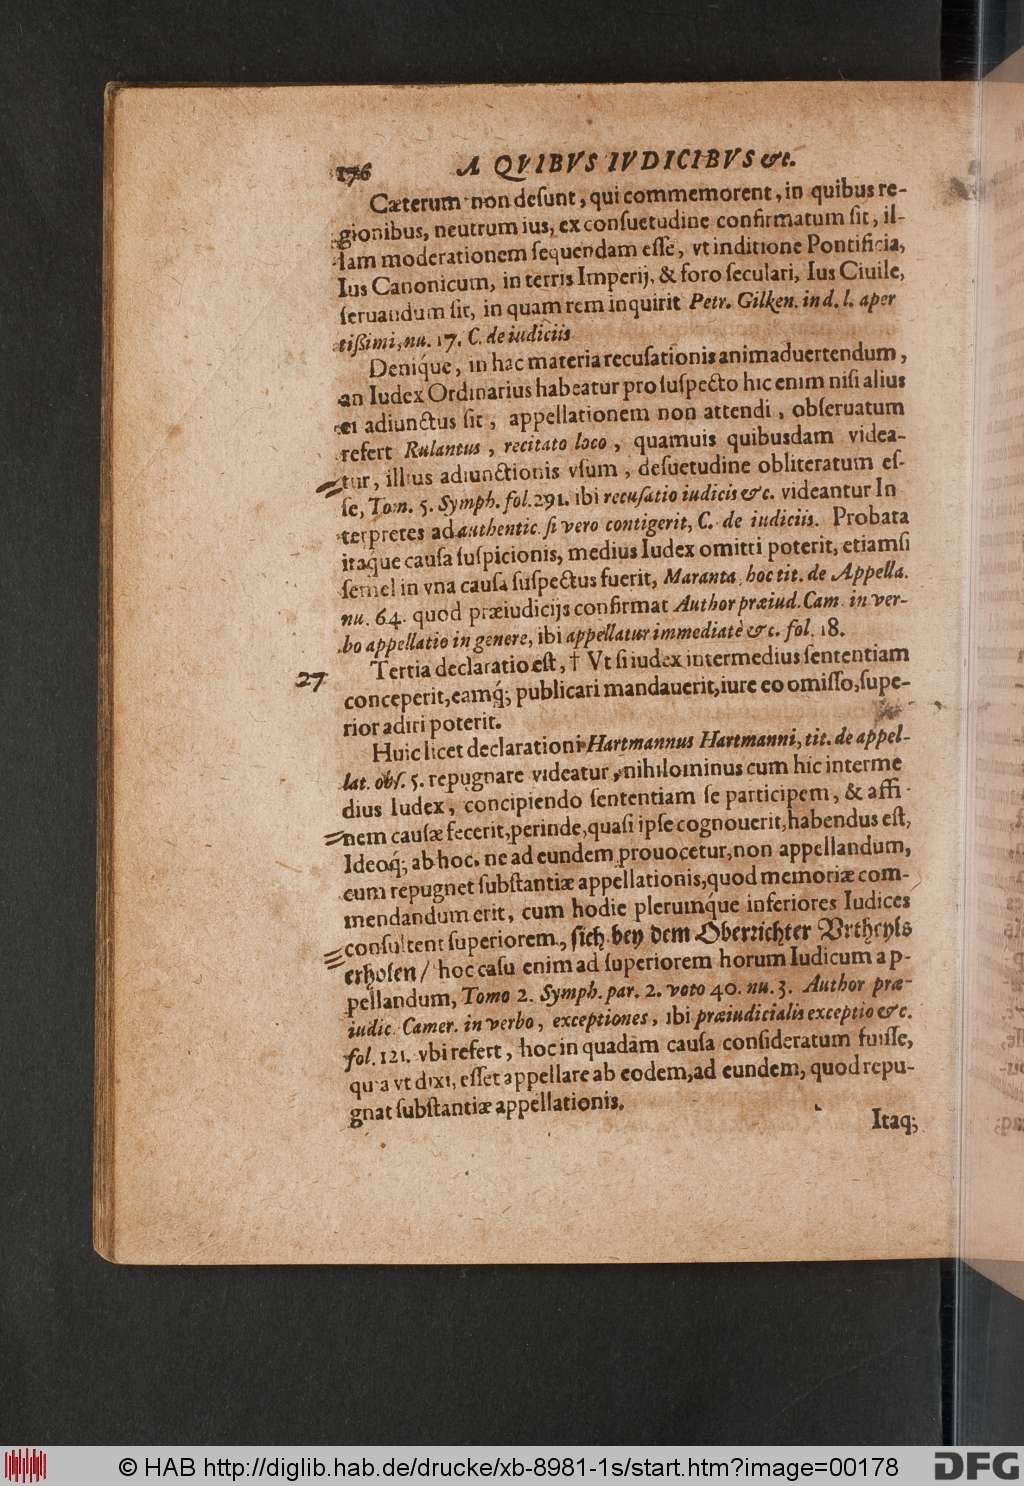 176 A QVIBVS IVDICIBVS &c.
Cæterum non desunt, qui commemorent, in quibus re-
gionibus, neutrum ius, ex consuetudine confirmatum sit, il-
lam moderationem sequendam esse, vt in ditione Pontificia,
Ius Canonicum, in terris Imperij, & foro seculari, Ius Ciuile,
seruandum sit, in quam rem inquirit Petr. Gilken. in d. l. aper
tißimi, nu. 17. C. de iudiciis
Deniq́ue, in hac materia recusationis animaduertendum,
an Iudex Ordinarius habeatur pro suspecto hic enim nisi alius
ei adiunctus sit, appellationem non attendi, obseruatum
refert Rulantus, recitato loco, quamuis quibusdam videa-
tur, illius adiunctionis vsum, desuetudine obliteratum es-
se, Tom. 5. Symph. fol. 291. ibi recusatio iudicis &c. videantur In
terpretes ad authentic. si vero contigerit, C. de iudiciis. Probata
itaque causa suspicionis, medius Iudex omitti poterit, etiamsi
semel in vna causa suspectus fuerit, Maranta hoc tit. de Appella.
nu. 64. quod præiudicijs confirmat Author præiud. Cam. in ver-
bo appellatio in genere, ibi appellatur immediatè &c. fol. 18.
27 Tertia declaratio est, † Vt si iudex intermedius sententiam
conceperit, eamq́; publicari mandauerit, iure eo omisso, supe-
rior adiri poterit.
Huic licet declarationi Hartmannus Hartmanni, tit. de appel-
lat. obs. 5. repugnare videatur, nihilominus cum hic interme
dius Iudex, concipiendo sententiam se participem, & affi-
nem causæ fecerit, perinde, quasi ipse cognouerit, habendus est,
Ideoq́; ab hoc, ne ad eundem prouocetur, non appellandum,
cum repugnet substantiæ appellationis, quod memoriæ com-
mendandum erit, cum hodie plerumq́ue inferiores Iudices
consultent superiorem, sich bey dem Oberrichter Vrtheyls
erholen / hoc casu enim ad superiorem horum Iudicum ap-
pellandum, Tomo 2. Symph. par. 2. voto 40. nu. 3. Author præ-
iudic. Camer. in verbo, exceptiones, ibi præiudicialis exceptio &c.
fol. 121. vbi refert, hoc in quadam causa consideratum fuisse,
quia vt dixi, esset appellare ab eodem, ad eundem, quod repu-
gnat substantiæ appellationis.
Itaq;
© HAB http://diglib.hab.de/drucke/xb-8981-1s/start.htm?image=00178
DFG